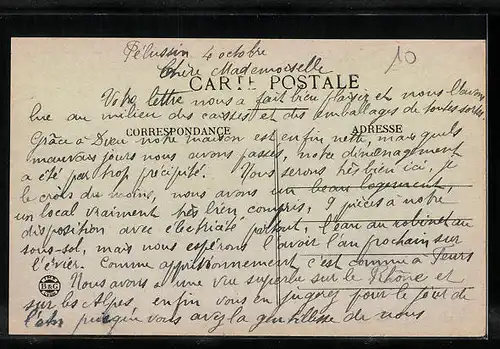 Pélussin 4 octobre
10
Chère Mademoiselle
CARTE POSTALE
Votre lettre nous a fait bien plaisir et nous l'avons
lue au milieu des caisses et des emballages de toutes sortes.
CORRESPONDANCE
ADRESSE
Grâce à Dieu notre maison est enfin nette, mais quels
mauvais jours nous avons passés, notre déménagement
a été par trop précipité. Nous serons très bien ici, je
le crois du moins, nous avons un beau logement,
un local vraiment très bien compris, 9 pièces à notre
disposition avec électricité partout, l'eau au robinet au
sous-sol, mais nous espérons l'avoir l'an prochain sur
l'évier. Comme approvisionnement c'est comme à Feurs
Nous avons une vue superbe sur le Rhône et
sur les Alpes enfin vous en jugerez pour le jour de
l'an puisque vous avez la gentillesse de nous
B & G